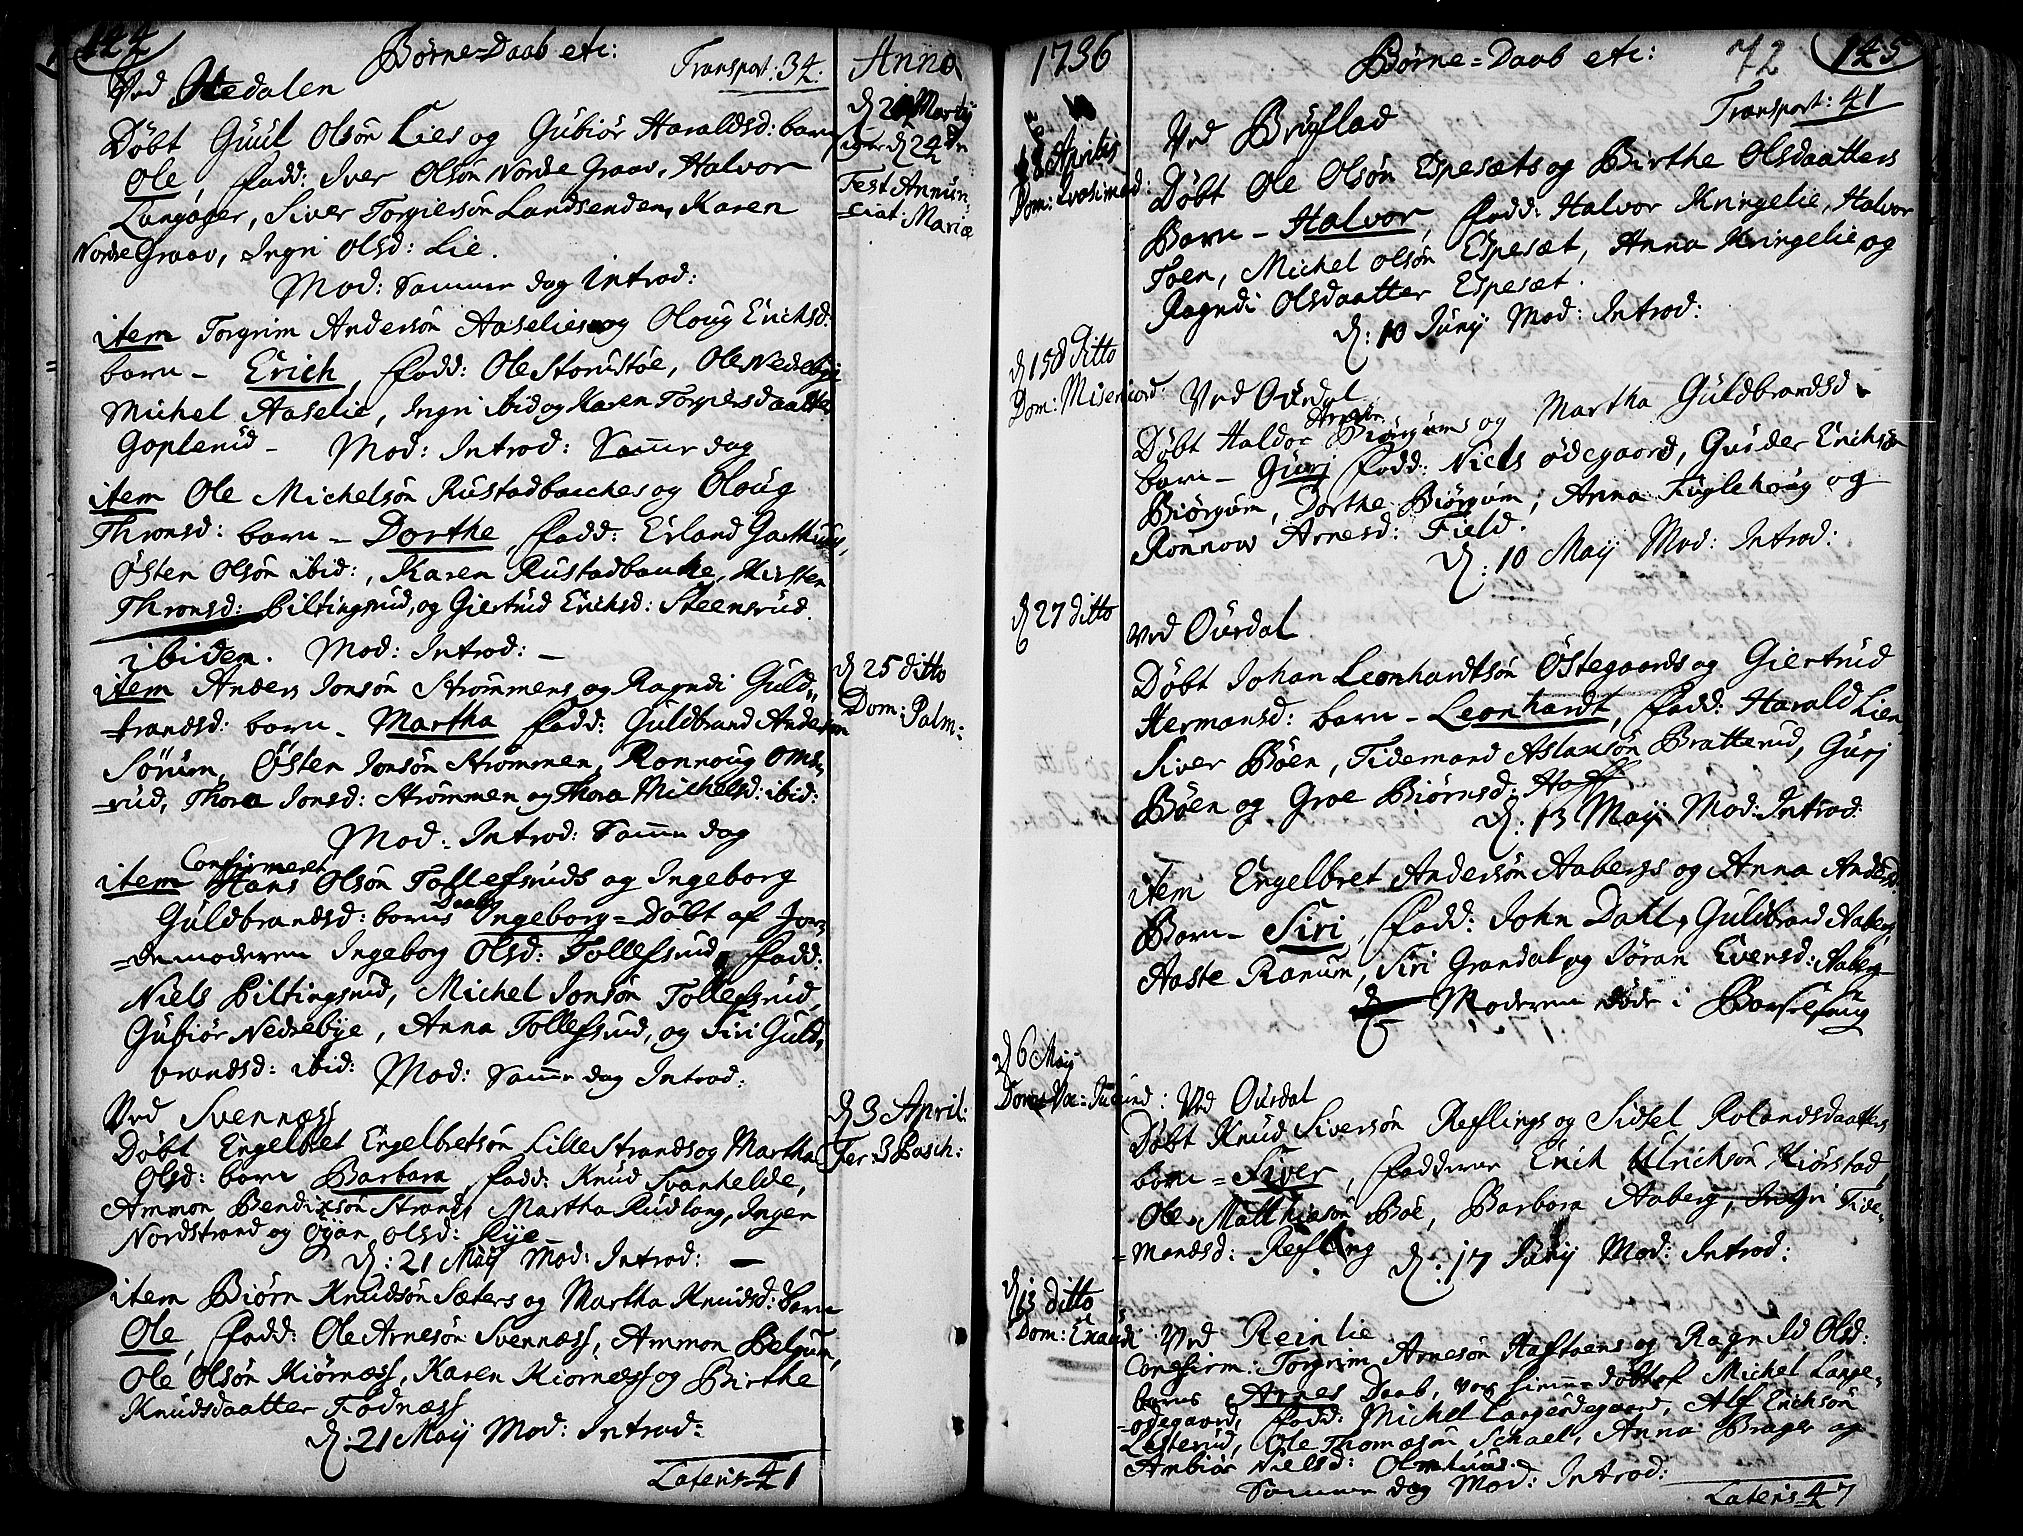 144
Børne-Daab etc:
Transport: 34:
Anno
Ved Hedalen
Døbt Guul Olsøn Lies og Gubiør Haraldsd: barn
Ole, fadd: Iver Olsøn Nordre Graav, Halvor
Langager, Siver Torgiersøn Landsenden, Karen
Nordre Graav, Ingri Olsd: Lie.
Mod: Samme dag Introd:
Martij
d 24
Fest: Annun
=ciat: Mariæ
item Torgrim Andersøn Aaselies og Oloug Erichsd:
barn - Erich, fadd: Ole Storrustøe, Ole Nedrebye
Michel Aaselie, Ingri ibid og Karen Torgersdaatter
Goplerud - Mod: Introd: Samme dag
item Ole Michelsøn Rustadbakkes og Oloug
Thronsd: barn - Dorthe, fadd: Erland Garthuus,
Østen Olsøn ibid:, Karen Rustadbakke, Kirsten
Thronsd: Piltingsrud, og Giertrud Erichsd: Steensrud.
ibidem. Mod: Introd: -
item Anders Jonsøn Strømmens og Ragndi Guld=
=brandsd: barn - Martha fadd: Guldbrand Andersøn
Sørum, Østen Jonsøn Strømmen, Ronnoug Oms=
=rud, Thora Jonsd: Strømmen og Thora Michelsd: ibid:
Mod: Introd: Samme dag
d 25 ditto
Dom: Palm:
item Confirmeret Hans Olsøn Tollefsruds og Ingeborg
Guldbrandsd: barns Daab Ingeborg = Døbt af Jor=
=demoderen Ingeborg Olsd: Tollefsrud, fadd:
Niels Piltingsrud, Michel Jonsøn Tollefsrud,
Gubiør Nedrebye, Anna Tollefsrud, og Siri Guld=
brandsd: ibid: Mod: Samme dag Introd:
Ved Svennæss
Døbt Engelbret Engelbretsøn Lille Strands og Martha
Olsd: barn Barbara, fadd: Knud Svanhelde,
Ammon Bendixsøn Strand, Martha Rudlang, Inger
Nordstrand og Olsd: Rye -
d: 21 Maij Mod: Introd: -
d 3 April:
Fer: 3 Pasch:
item Biørn Knudsøn Sæters og Martha Knudsd: barn
Ole, fadd: Ole Arnesøn Svennæss, Ammon Belgum,
Ole Olsøn Kiørnæss, Karen Kiørnæss og Birthe
Knudsdaatter Fodnæss
d: 21 Maij Mod: Introd:
Lateris 41
1736
Børne-Daab etc:
72
145
Transport: 41
Aprilis
Dom: Qvasimod:
Ved Bruflad
Døbt Ole Olsøn Espesæts og Birthe Olsdaatters
Barn - Halvor, fadd: Halvor Kringelie, Halvor
Toen, Michel Olsøn Espesæt, Anna Kringelie og
Ragndi Olsdaatter Espesæt.
d: 10 Junij Mod: Introd:
d 15 ditto
Dom: Misericord:
Ved Ourdal
Døbt Haldor Biørgums og Martha Guldbrandsd:
barn - Gurj fadd: Niels Ødegaard, Guider Erichsøn
Biørgum, Dorthe Biørgum, Anna Fuglehoug og
Ronnow Arnesd: Field.
d: 10 Maij Mod: Introd:
d 27 ditto
Ved Ourdal
Døbt Johan Leonhardtsøn Østegaards og Giertrud
Hermansd: barn - Leonhardt, fadd: Harald Lien
Siver Bøen, Tidemand Aslaksøn Bratterud, Gurj
Bøen og Groe Biørnsd: Hoff
d: 13 Maij Mod: Introd:
item Engelbret Andersøn Aabergs og Anna Andersd
Barn - Siri, fadd: John Dahl, Guldbrand Aaberg,
Aaste Ranum, Siri Grandal og Jøran Evensd: Aaberg
Moderen døde i Barselseng
d 6 Maij
Ved Ourdal
Døbt Knud Siversøn Reflings og Sidsel Rolandsdaatters
barn = Siver, fadderne Erich Ulrichsøn Kiørstad,
Ole Matthiasøn Bøe, Barbara Aaberg, Ingri Tide=
=mandsd: Refling d: 17 Junij Mod: Introd:
d 13 ditto
Dom: Exaudi
Ved Reinlie
Confirm: Torgrim Arnesøn Haftoens og Ragnild Olsd:
barns Arnes Daab, var hiemme døbt af Michel Lange=
=ødegaard, fadd: Michel Langeødegaard, Alf Erichsøn
Listerud, Ole Thomæsøn Schael, Anna Brager og
Ambiør Nielsd: Olmhuus.
Sammer dag Mod: Introd:
Lateris 47